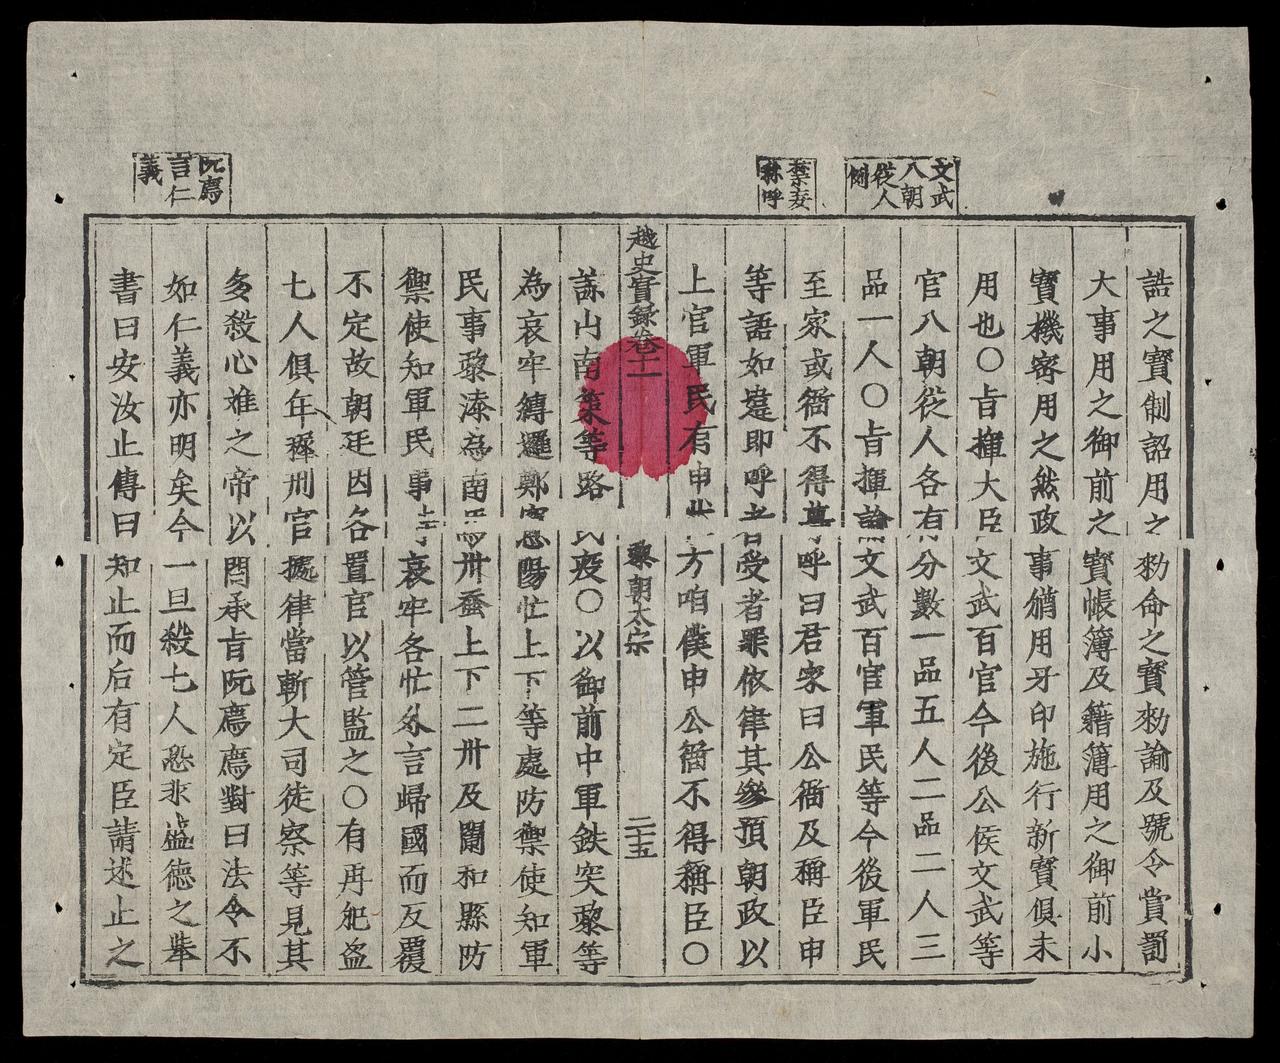 文武
八朝
從人
例
禁妄
称呼
阮廌
言仁
義
誥之寶制詔用之勑命之寶勑諭及號令賞罰
大事用之御前之寶帳簿及籍簿用之御前小
寶機密用之然政事猶用牙印施行新寶俱未
用也〇旨揮大臣文武百官今後公侯文武等
官八朝從人各有分數一品五人二品二人三
品一人〇旨揮諭文武百官軍民等今後軍民
至家或衙不得尊呼曰君家曰公衙及稱臣申
等語如違即呼者受者罪依律其參預朝政以
上官軍民有申此方咱僕申公衙不得稱臣〇
越史實録卷十一 黎朝太宗 二十五
諒山南策等路民疫〇以御前中軍鉄突黎等
為哀牢縛邏鄭忙上下等處防禦使知軍
民事黎漆為南馬卅蚕上下二卅及闌和縣防
禦使知軍民事哀牢各忙外言歸國而反覆
不定故朝廷因各置官以管監之〇有再犯盗
七人俱年穉刑官據律當斬大司徒察等見其
多殺心难之帝以問承旨阮廌廌對曰法令不
如仁義亦明矣今一旦殺七人恐非盛德之舉
書曰安汝止傳曰知止而后有定臣請述止之